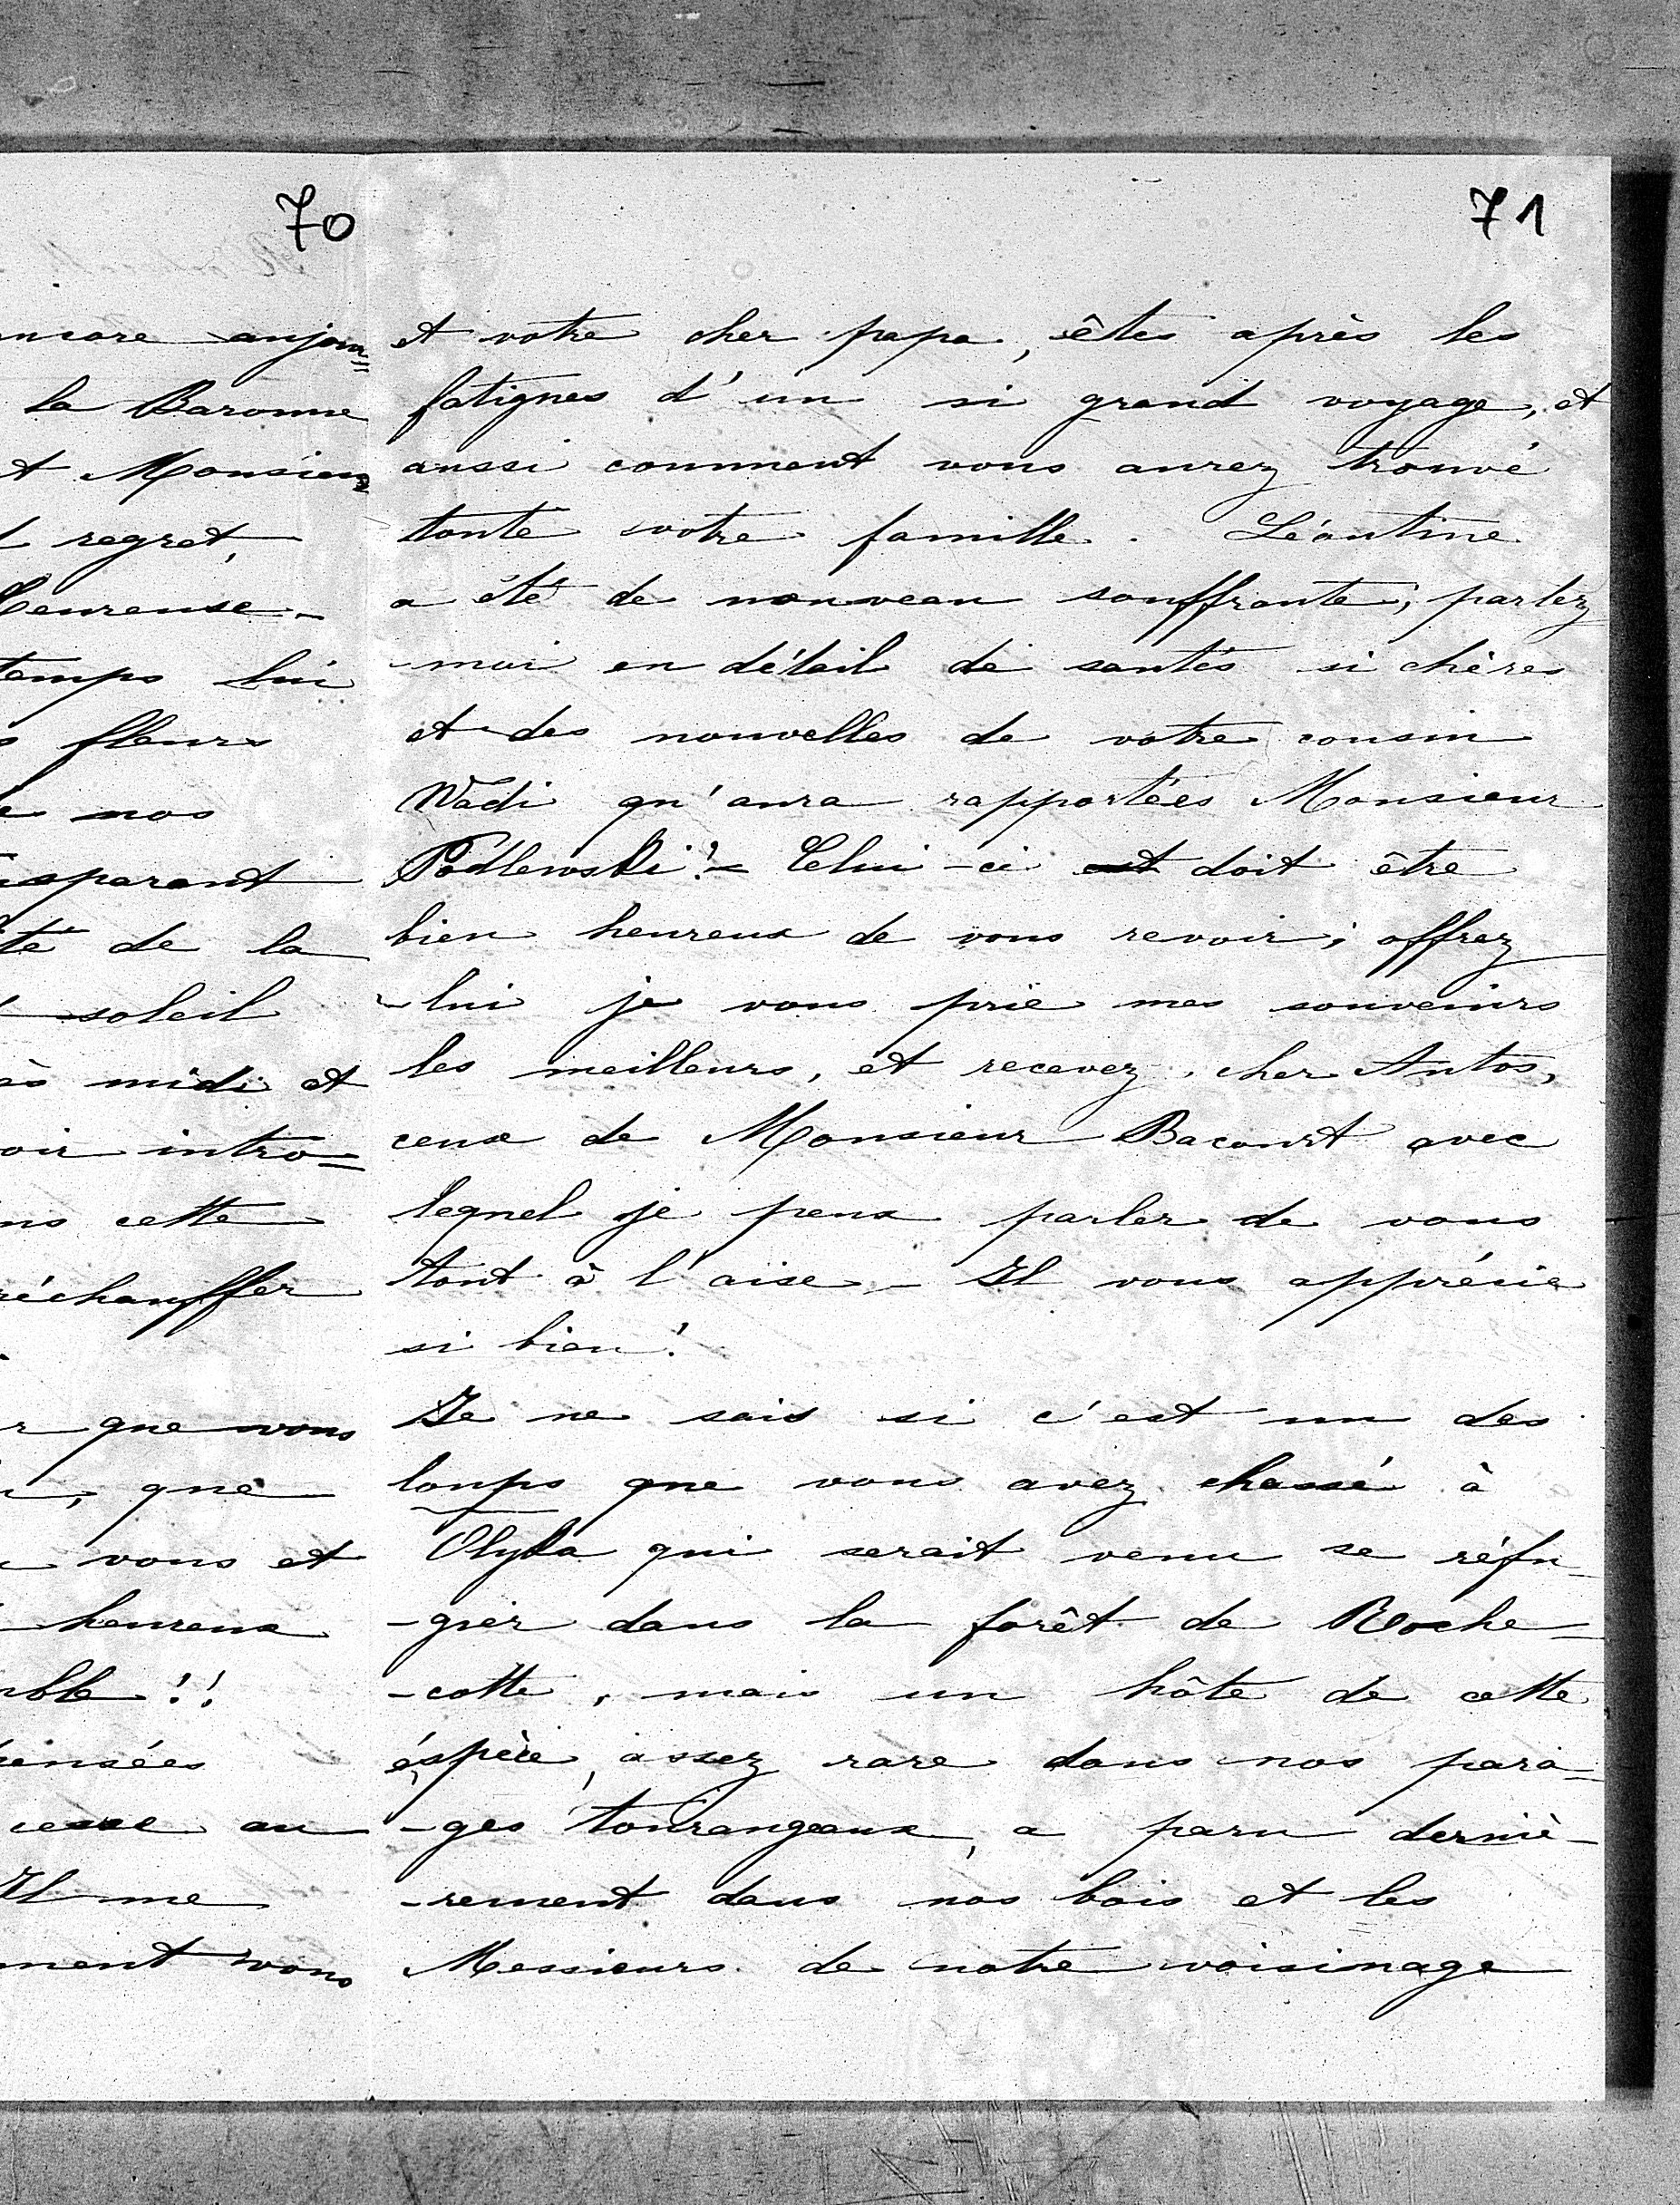 70
ncore aujour=
la Baronne
t Monsieur
regret,
heureuse-
temps lui
fleurs
nos
isparant
té de la
soleil
ès midi et
oir intro=
ns cette
réchauffer
r que vous
, que
vous et
heureux
ble !!
pensées
cesse au
Il me
ment vous
71
et votre cher papa, êtes après les
fatigues d'un si grand voyage, et
aussi comment vous aurez trouvé
toute votre famille. Léontine
a été de nouveau souffrante; parlez
-moi en détail de santés si chères
et des nouvelles de votre cousin
Wadi qu'aura rapportées Monsieur
Podlewski!- Celui-ci est doit être
bien heureux de vous revoir; offrez
-lui je vous prie mes souvenirs
les meilleurs, et recevez, cher Antos,
ceux de Monsieur Bacourt avec
lequel je peux parler de vous
tout à l'aise - Il vous apprécie
si bien!
Je ne sais si c'est un des
loups que vous avez chassé à
Olyka qui serait venu se réfu-
-gier dans la forêt de Roche-
-cotte, mais un hôte de cette
éspèce, assez rare dans nos para-
-ges tourangeaux, a paru derniè-
-rement dans nos bois et les
Messieurs de notre voisinage